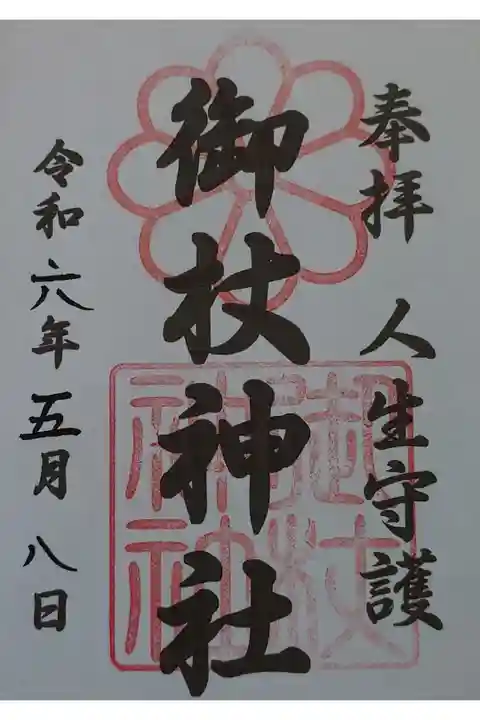 奉拝 人生守護
御杖神社
令和六年五月八日